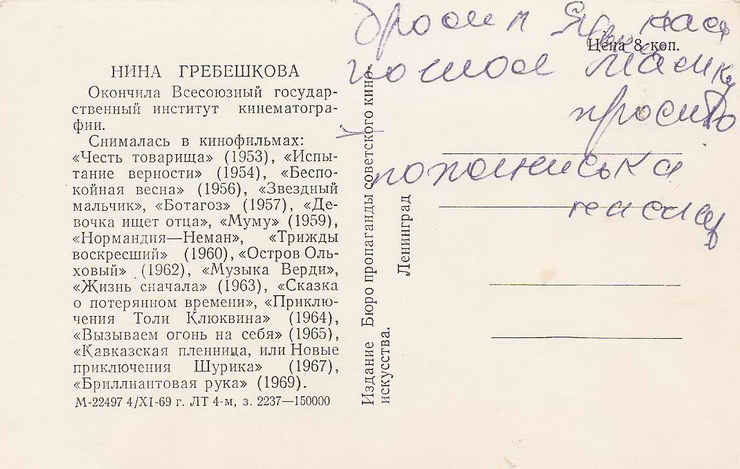 НИНА ГРЕБЕШКОВА
Окончила Всесоюзный государ-
ственный институт кинематогра-
фии.
Снималась в кинофильмах:
«Честь товарища» (1953), «Испы-
тание верности» (1954), «Беспо-
койная весна» (1956), «Звездный
мальчик», «Ботагоз» (1957), «Де-
вочка ищет отца», «Муму» (1959),
«Нормандия—Неман», «Трижды
воскресший» (1960), «Остров Оль-
ховый» (1962), «Музыка Верди»,
«Жизнь сначала» (1963), «Сказка
о потерянном времени», «Приклю-
чения Толи Клюквина» (1964),
«Вызываем огонь на себя» (1965),
«Кавказская пленница, или Новые
приключения Шурика» (1967),
«Бриллиантовая рука» (1969).
М-22497 4/XI-69 г. ЛТ 4-м, з. 2237—150000
Издание Бюро пропаганды советского кино-
искусства.
Ленинград
Цена 8 коп.